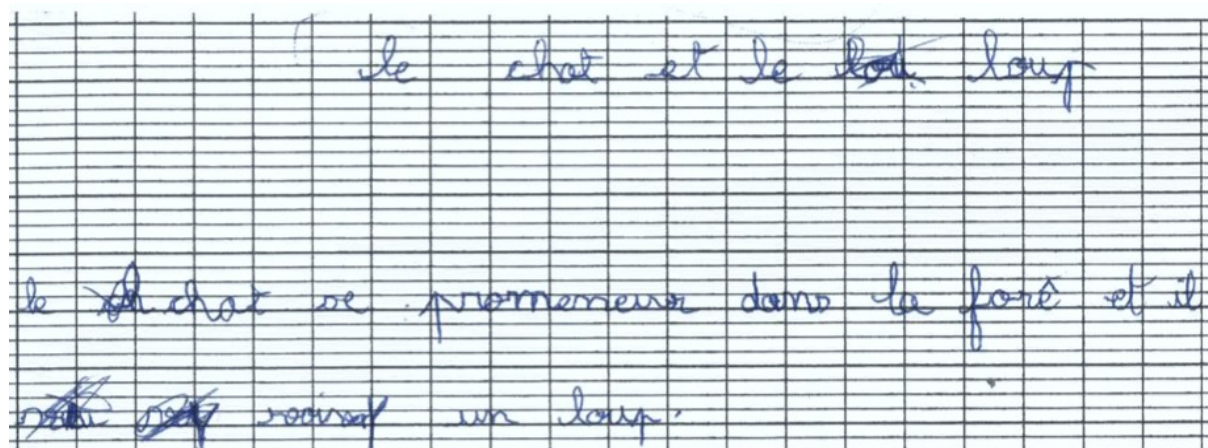 le chat et le loup
le chat se promeneur dans la forê et il
un loup.